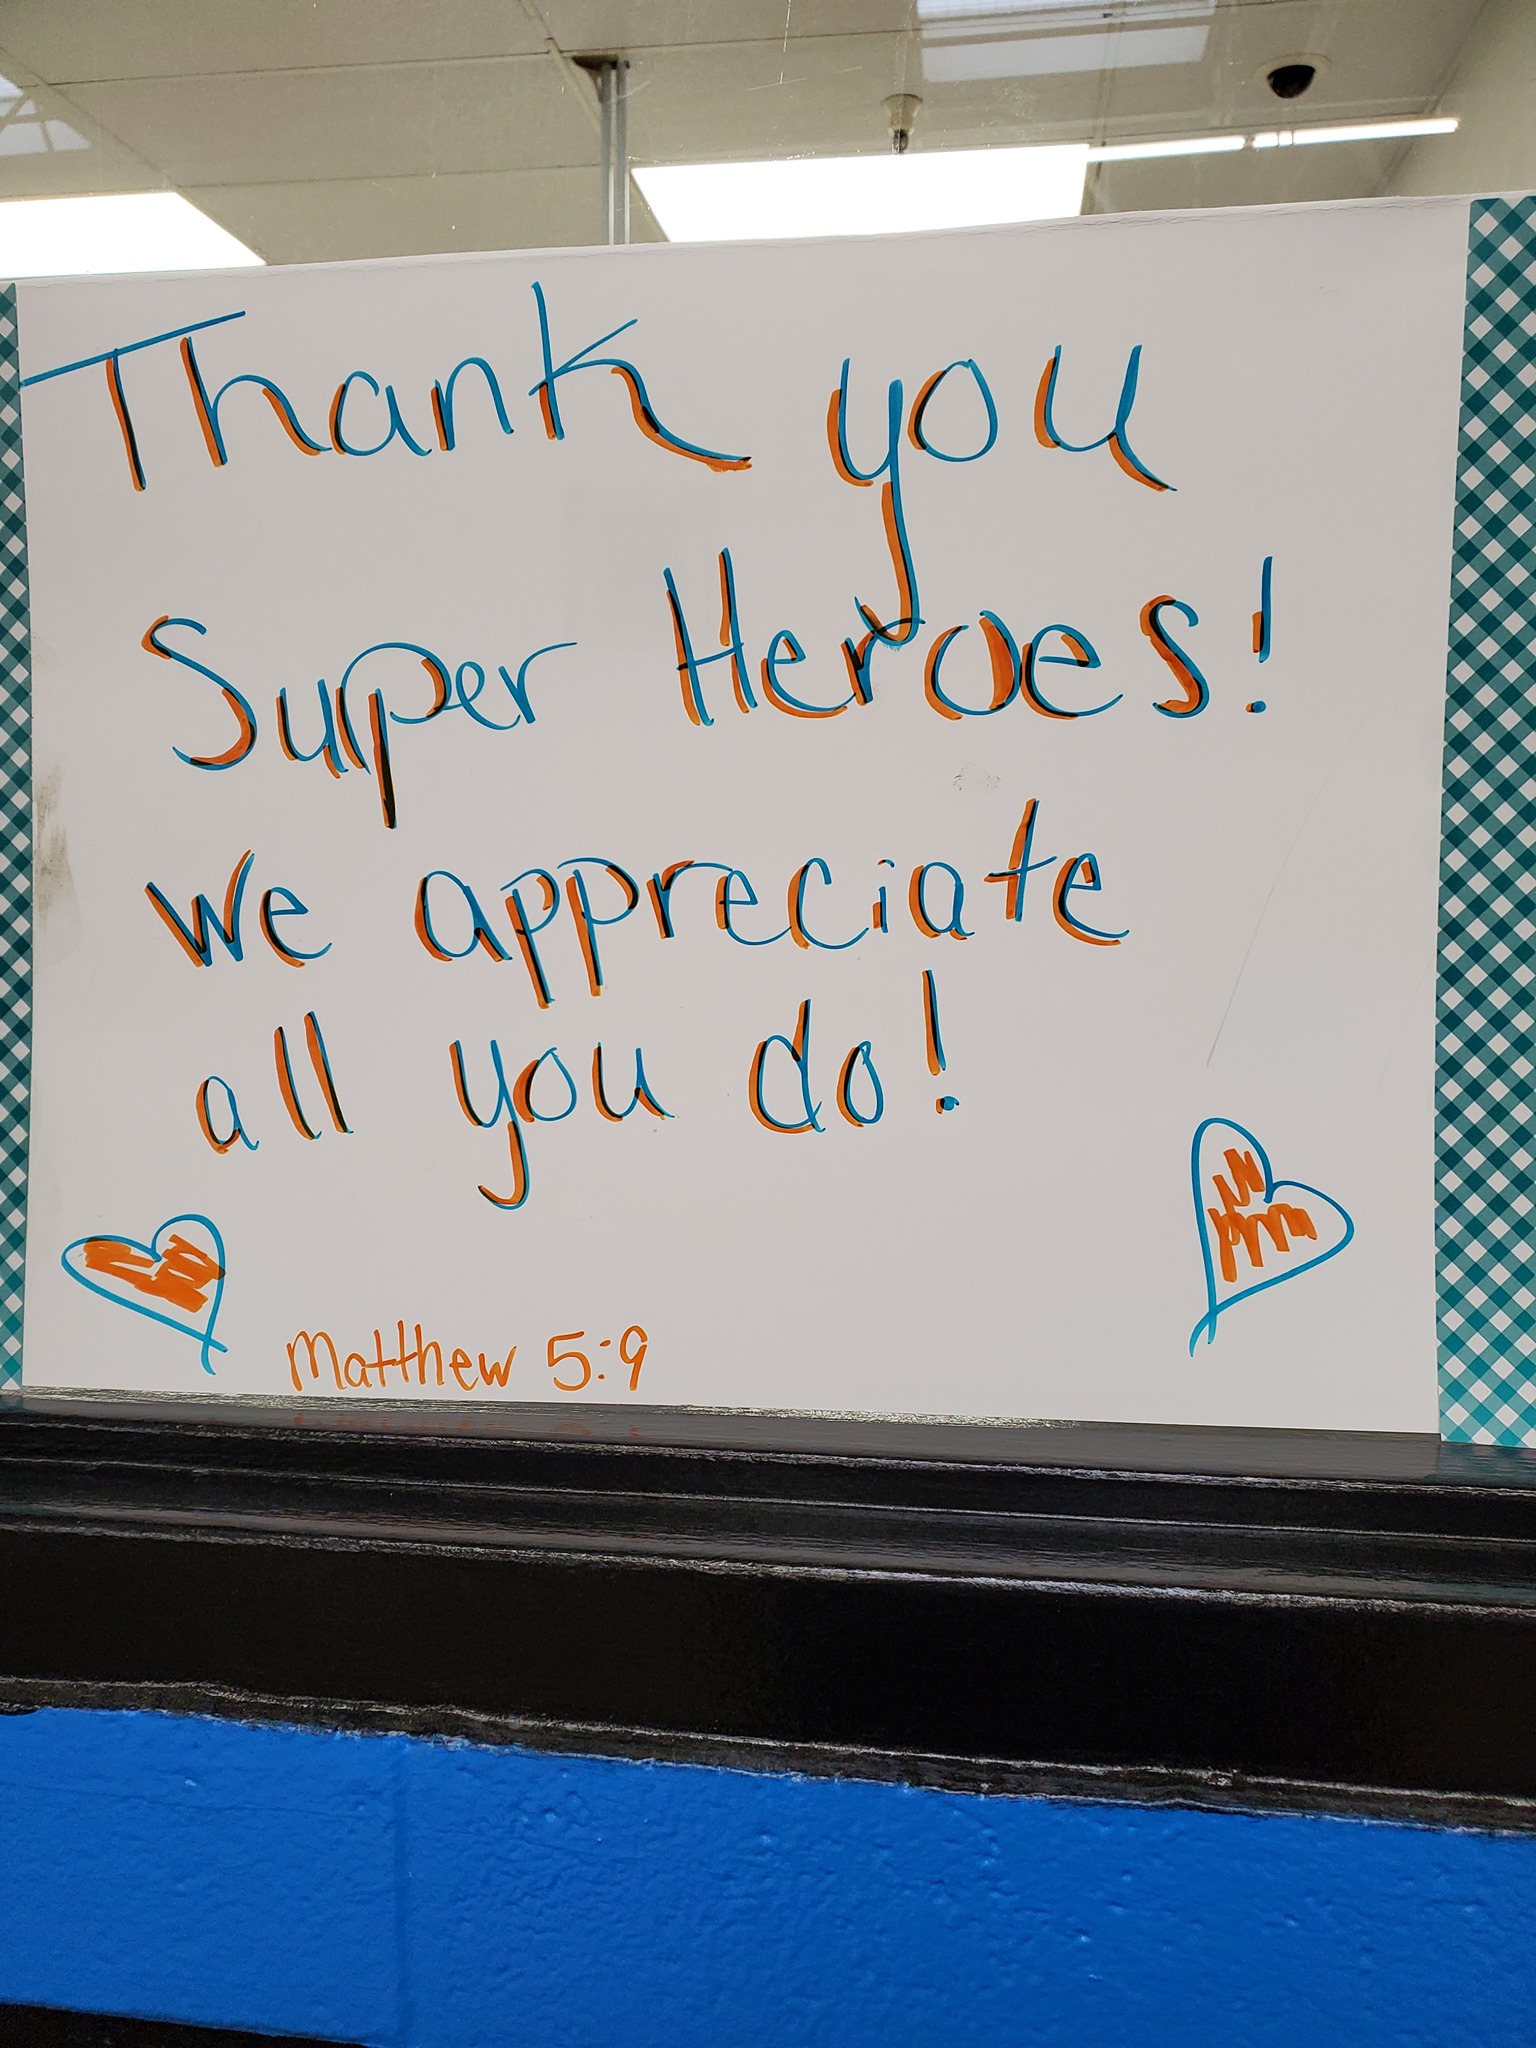 Thank you
Super Heroes!
We appreciate
all you do!
Matthew 5:9